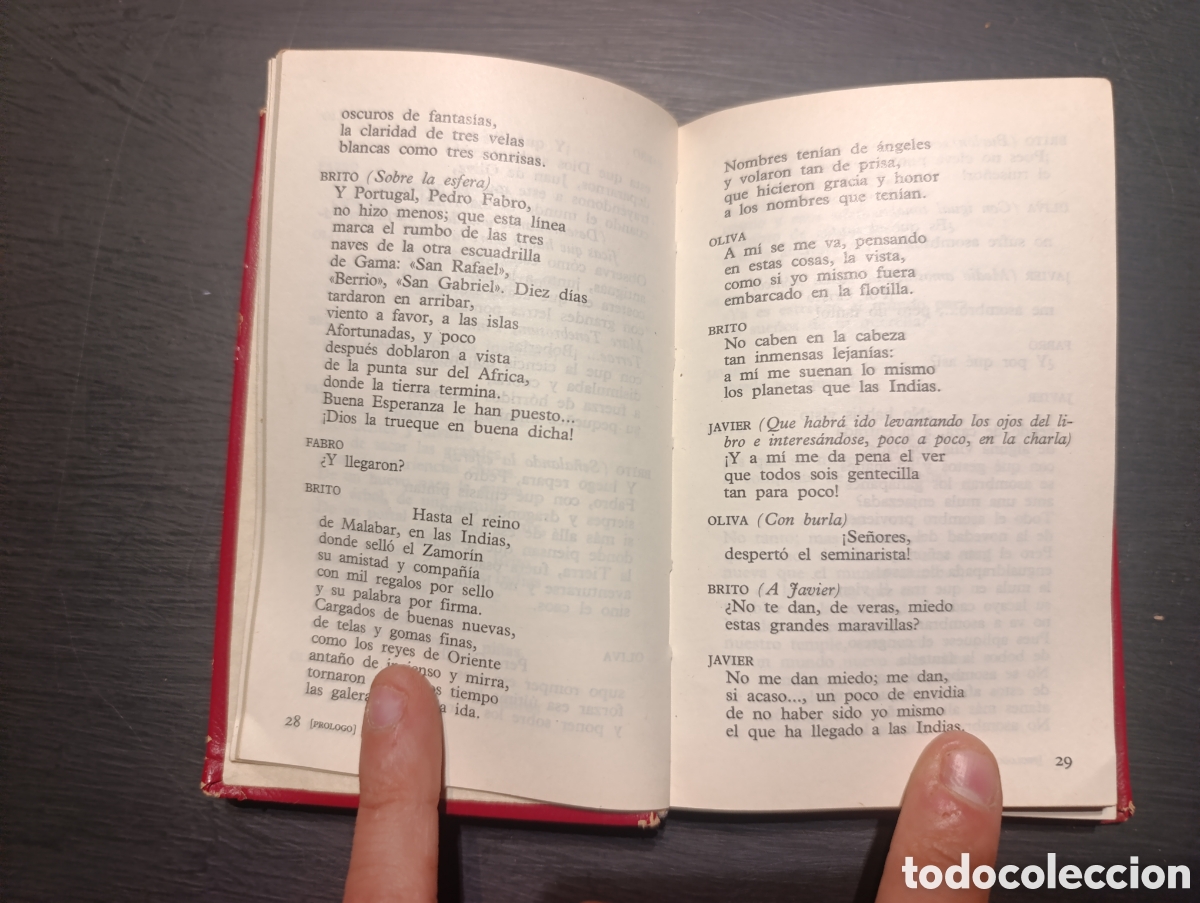 oscuros de fantasías,
la claridad de tres velas
blancas como tres sonrisas.
BRITO (Sobre la esfera)
Y Portugal, Pedro Fabro,
no hizo menos; que esta línea
marca el rumbo de las tres
naves de la otra escuadrilla
de Gama: «San Rafael»,
«Berrio», «San Gabriel». Diez días
tardaron en arribar,
viento a favor, a las islas
Afortunadas, y poco
después doblaron a vista
de la punta sur del Africa,
donde la tierra termina.
Buena Esperanza le han puesto...
¡Dios la trueque en buena dicha!
FABRO
¿Y llegaron?
BRITO
Hasta el reino
de Malabar, en las Indias,
donde selló el Zamorín
su amistad y compañía
con mil regalos por sello
y su palabra por firma.
Cargados de buenas nuevas,
de telas y gomas finas,
como los reyes de Oriente
antaño de incienso y mirra,
tornaron tiempo
las galera a ida.
28 [PROLOGO]
Nombres tenían de ángeles
y volaron tan de prisa,
que hicieron gracia y honor
a los nombres que tenían.
OLIVA
A mí se me va, pensando
en estas cosas, la vista,
como si yo mismo fuera
embarcado en la flotilla.
BRITO
No caben en la cabeza
tan inmensas lejanías:
a mí me suenan lo mismo
los planetas que las Indias.
JAVIER (Que habrá ido levantando los ojos del li-
bro e interesándose, poco a poco, en la charla)
¡Y a mí me da pena el ver
que todos sois gentecilla
tan para poco!
OLIVA (Con burla)
¡Señores,
despertó el seminarista!
BRITO (A Javier)
¿No te dan, de veras, miedo
estas grandes maravillas?
JAVIER
No me dan miedo; me dan,
si acaso..., un poco de envidia
de no haber sido yo mismo
el que ha llegado a las Indias.
29
todocoleccion